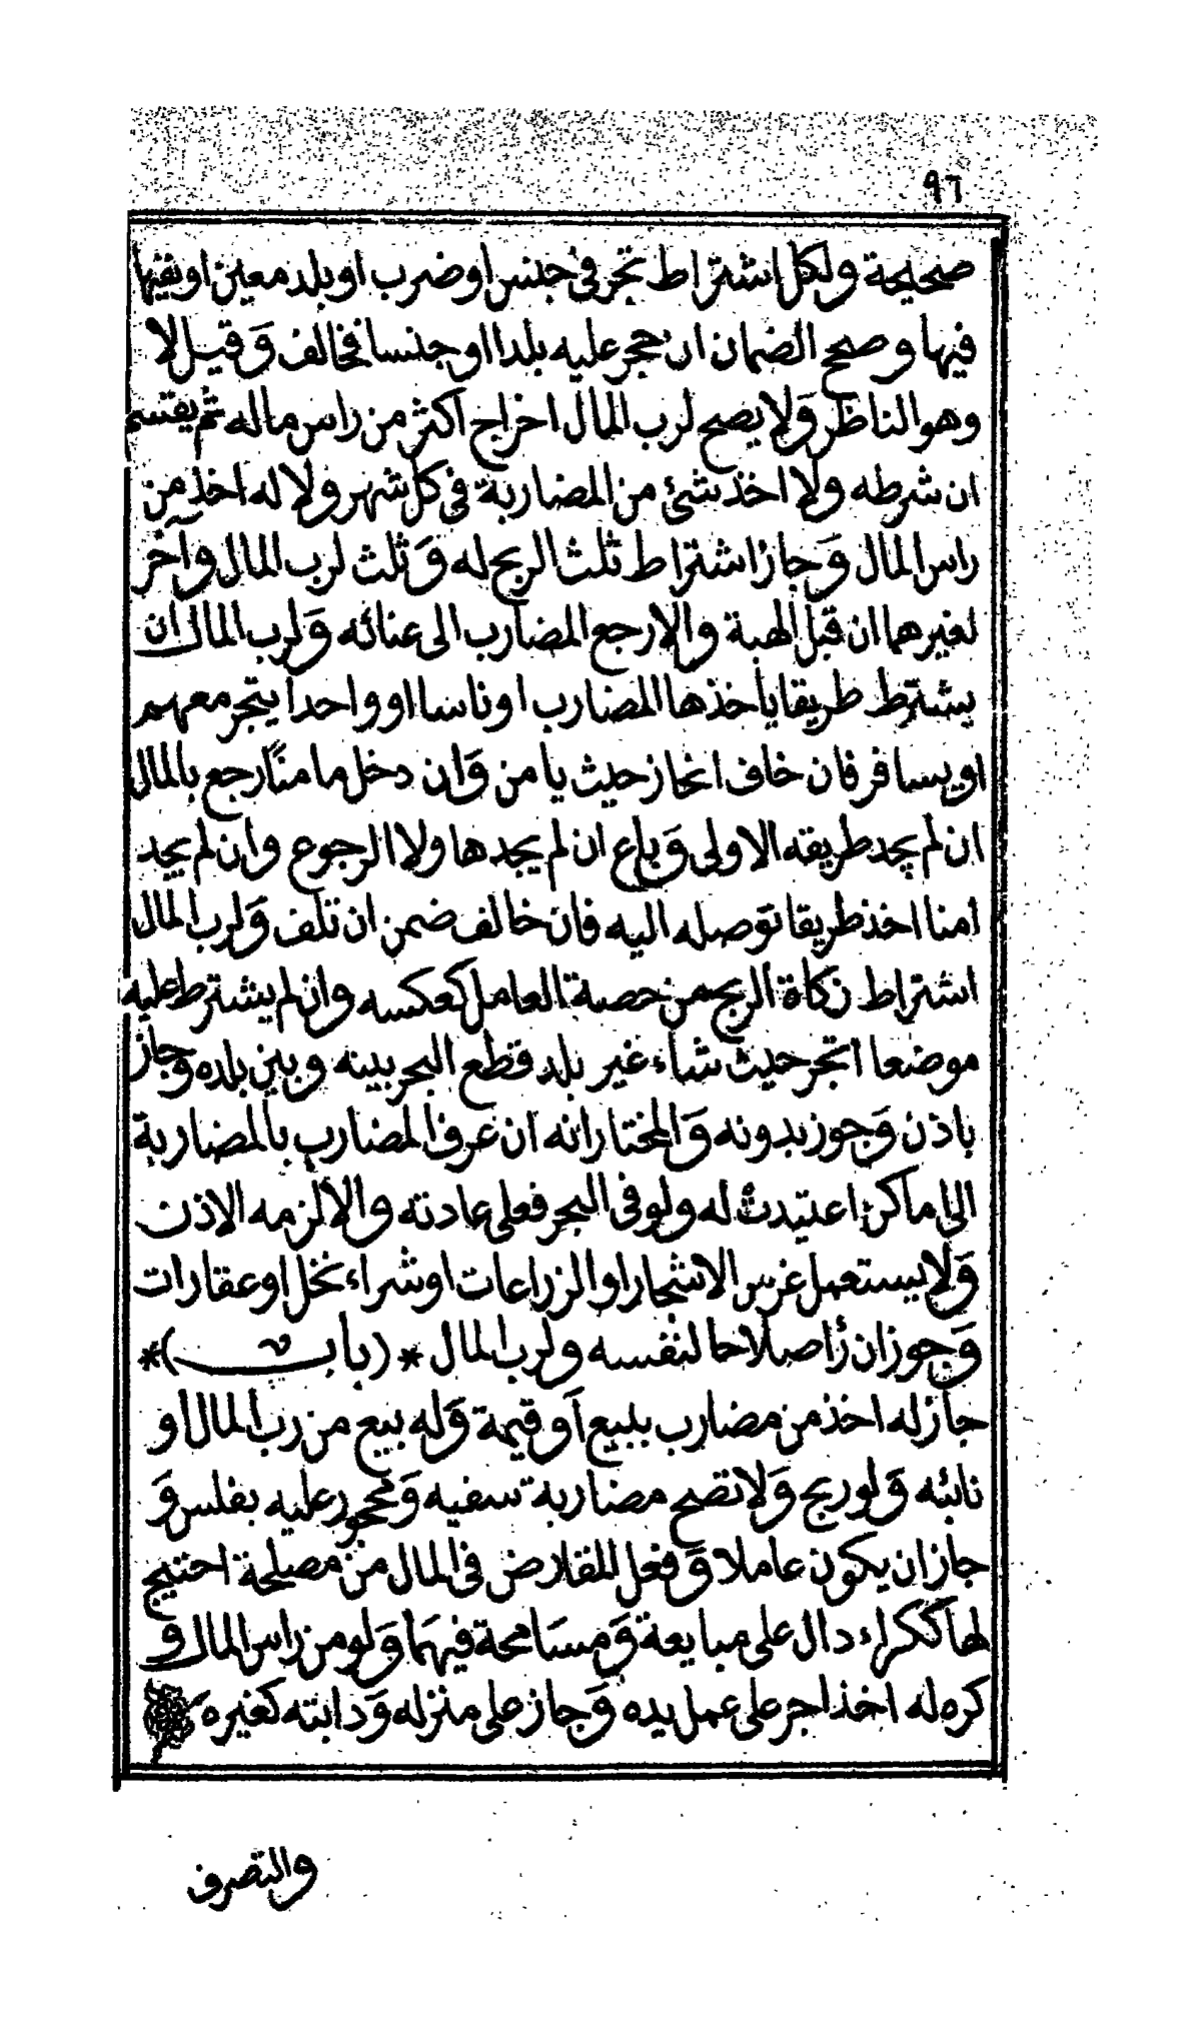 ٩٦
صحيحة ولكل اشتراط تجر في جنس او ضرب او بلد معين او بفيها
فيها وصح الضمان ان حجر عليه بلدا او جنسا فخالف وَقيل لا
وهو الناظر وَلا يصح لرب المال اخراج اكثر من راس ماله ثم يقتسم
ان شرطه ولا اخذ شئ من المضاربة في كل شهر ولا له اخذ من
راس المال وَجاز اشتراط ثلث الربح له وَثلث لرب المال وآخر
لغيرهما ان قبل الهبة والا رجع المضارب الى عنائه وَلرب المال ان
يشترط طريقا ياخذها المضارب او ناسا او واحدا يتجر معهم
او يسافر فان خاف انحاز حيث يامن وَان دخل مامنًا رجع بالمال
ان لم يجد طريقه الاولى وَباع ان لم يجدها ولا الرجوع وان لم يجد
امنا اخذ طريقا توصله اليه فان خالف ضمن ان تلف وَلرب المال
اشتراط زكاة الربح من حصة العامل كعكسه وان لم يشترط عليه
موضعا اتجر حيث شاء غير بلد قطع البحر بينه وبين بلده وجاز
باذن وَجوز بدونه وَالمختار انه ان عرف المضارب بالمضاربة
الى اماكن اعتيدت له ولو في البحر فعلى عادته والا لزمه الاذن
وَلا يستعمل غرس الاشجار او الزراعات او شراء نخل او عقارات
وَجوز ان رأ اصلاحا لنفسه ولرب المال * (باب) *
جاز له اخذ من مضارب ببيع اَو قيمة وَله بيع من رب المال او
نائبه وَلو ربح وَلا تصح مضاربة سفيه وَمحجور عليه بفلس وَ
جاز ان يكون عاملا وَفعل المقارض في المال من مصلحة احتيج
لها ككراء دال على مبايعة وَمسَامحة فيهَا وَلو من راس المال و
كره له اخذ اجر على عمل يده وَجاز على منزله وَدابته كغيره
والتصرف